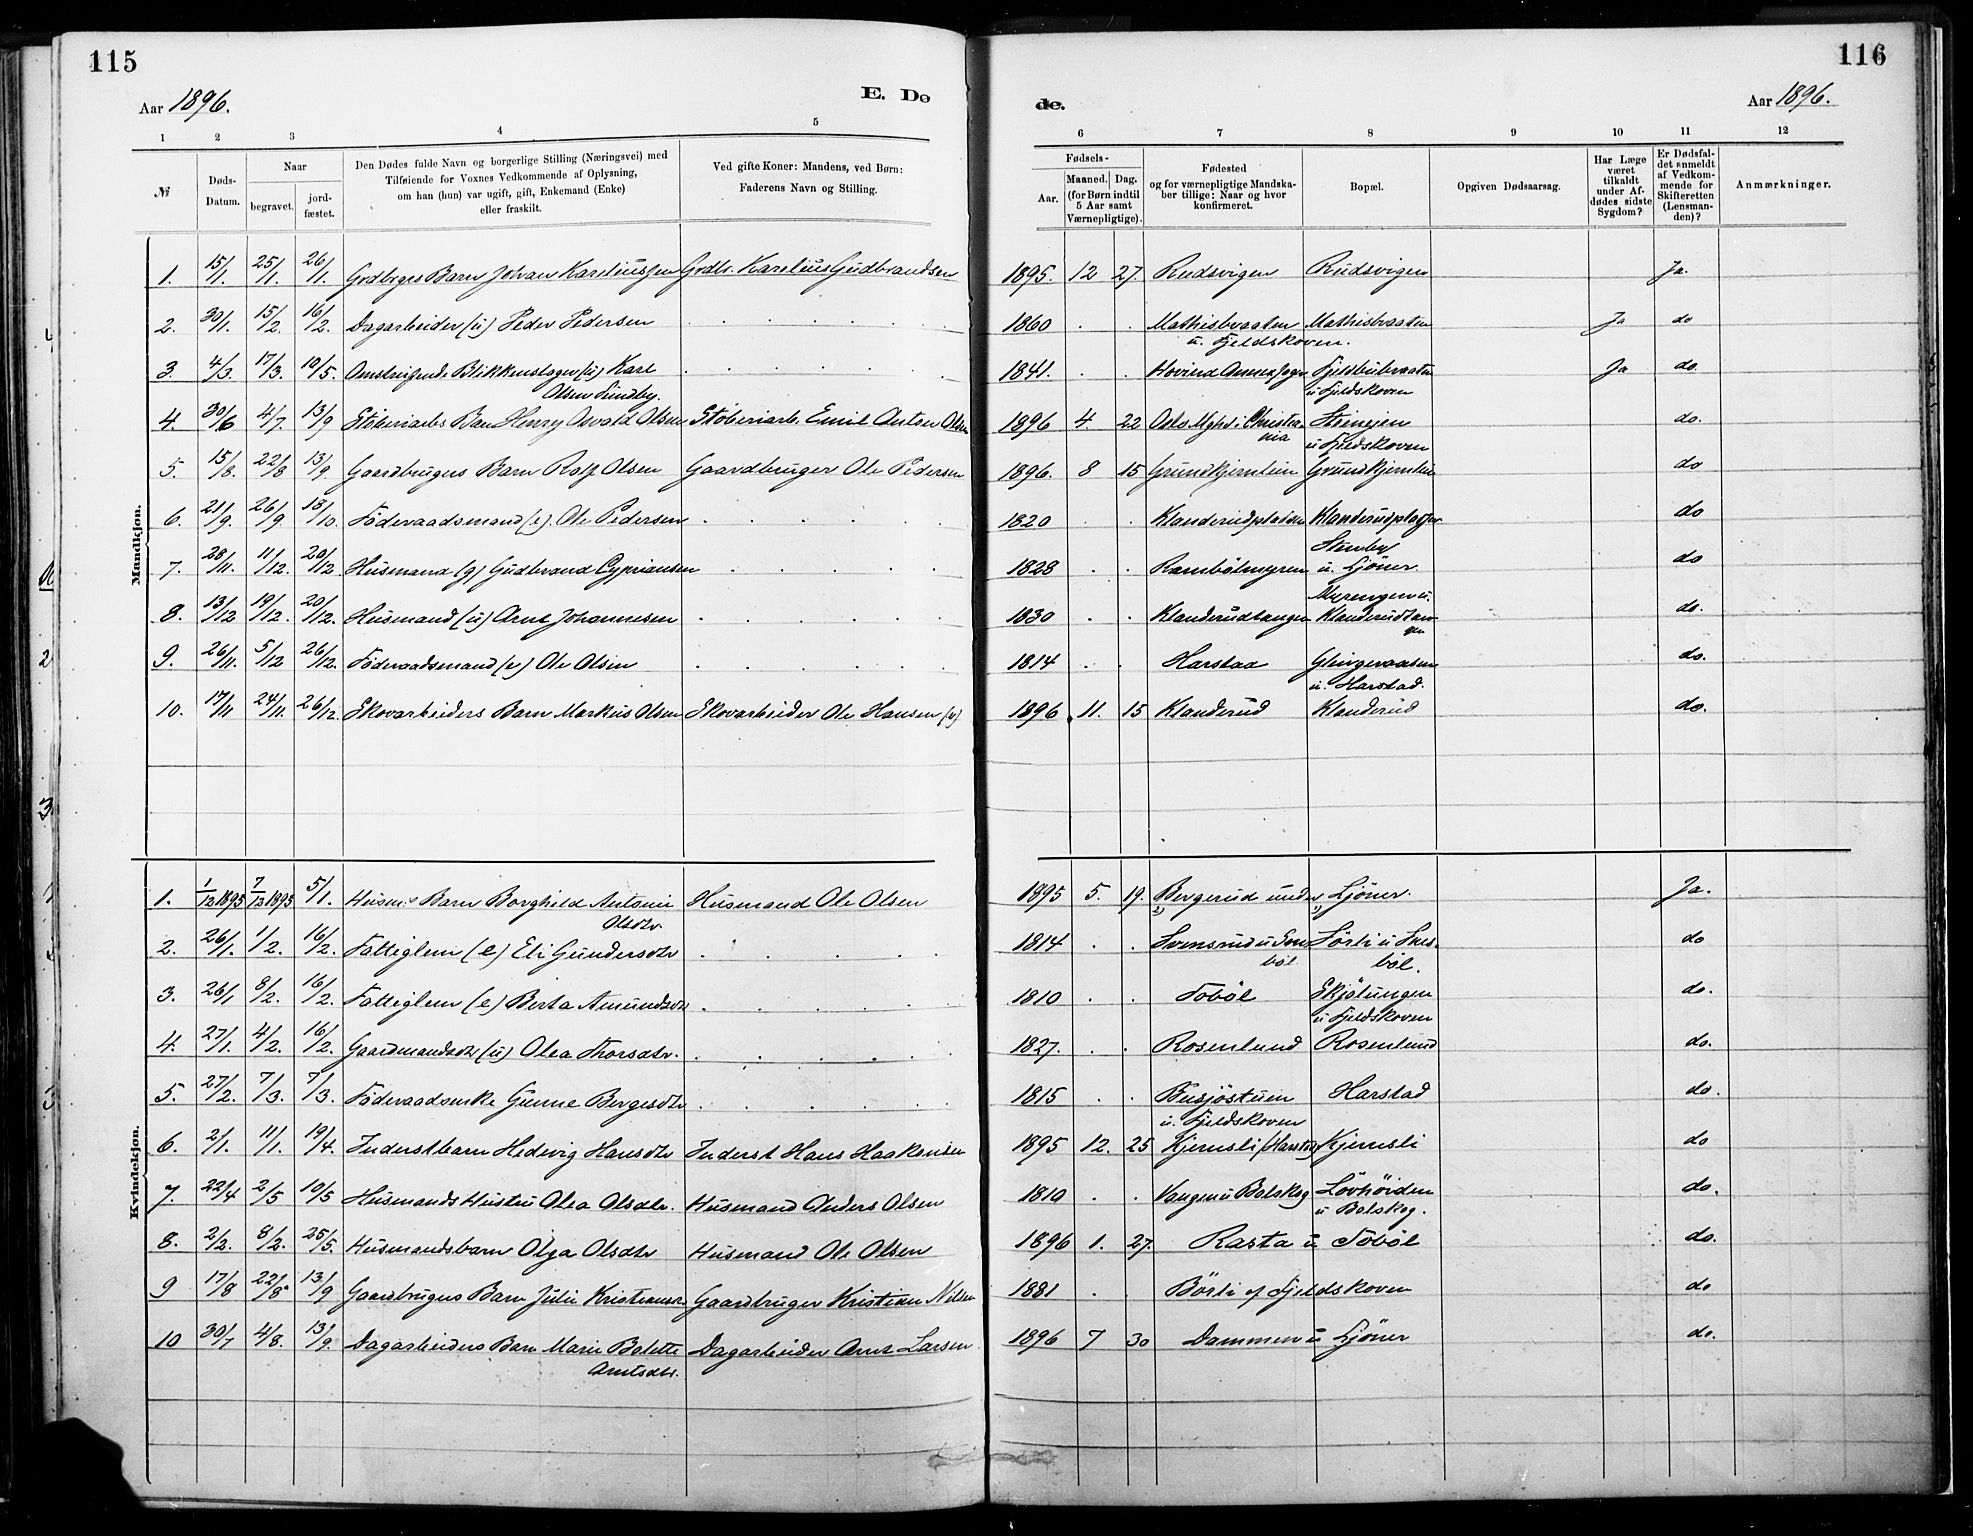 115
116
Aar 1896.
E. Dø
de.
Aar 1896.
1 2 3 4 5
6 7 8 9 10 11 12
№
Døds-
Datum.
Naar
begravet.
jord-
fæstet.
Den Dødes fulde Navn og borgerlige Stilling (Næringsvei) med
Tilføiende for Voxnes Vedkommende af Oplysning,
om han (hun) var ugift, gift, Enkemand (Enke)
eller fraskilt.
Ved gifte Koner: Mandens, ved Børn:
Faderens Navn og Stilling.
Fødsels-
Aar.
Maaned. Dag.
(for Børn indtil
5 Aar samt
Værnepligtige).
Fødested
og for værnepligtige Mandska-
ber tillige: Naar og hvor
konfirmeret.
Bopæl.
Opgiven Dødsaarsag.
Har Læge
været
tilkaldt
under Af-
dødes sidste
Sygdom?
Er Dødsfal-
det anmeldt
af Vedkom-
mende for
Skifteretten
(Lensman-
den)?
Anmærkninger.
Mandkjøn.
1. 15/1. 25/1. 26/1. Grdbrgers Barn Johan Kareliussen Grdbr. Karelius Gudbrandsen 1895. 12 27. Rudsvigen Rudsvigen Ja.
2. 30/1. 15/2. 16/2. Dagarbeider (u) Peder Pedersen 1860 Mathisbraaten Mathisbraaten Ja do
u. Fjeldskoven.
3. 4/3. 17/3. 10/5. Omstreifende Blikkenslager (u) Karl 1841. Hovind Fjeldbubraaten Ja do.
Olsen Sundby. u Fjeldskoven
4. 30/6 4/7. 13/9 Støberiarbs Barn Henry Osvald Olsen Støberiarb. Emil Anton Olsen 1896 4. 22 Oslo Mghd. i Christia- Steinejen do.
nia u Fjeldskoven
5. 15/8. 22/8 13/9. Gaardbrugers Barn Rolf Olsen Gaardbruger Ole Pedersen 1896. 8 15 Grundtjernlien Grundtjernlien do
6. 21/9. 26/9 18/10. Føderaadsmand (e) Ole Pedersen 1820 Klanderudpladsen Klanderudpladsen do
7. 28/11. 11/12. 20/12 Husmand (g) Gudbrand Cypriansen 1828 Rambølmyren Stenby
u. Ljøner. do
8. 13/12 19/12. 20/12. Husmand (u) Arne Johannesen 1830 Klanderudtangen Myrengen u.
Klanderudtan-
gen do.
9. 26/11. 5/12 26/12. Føderaadsmand (e) Ole Olsen 1814 Harstad Glingeraasen do.
u. Harstad.
10. 17/11 24/11. 26/12. Skovarbeiders Barn Markus Olsen Skovarbeider Ole Hansen (g) 1896 11. 15 Klanderud Klanderud do.
Kvindekjøn.
1. 1/12 1895 7/12 1895 5/1. Husm.s Barn Borghild Antonie Husmand Ole Olsen 1895 5. 19. Bergerud under Ljøner. Ja.
Olsdtr
2. 26/1. 1/2. 16/2. Fattiglem (e) Eli Gundersdtr 1814 Svensrud u Snes- Sørli u Snes- do
bøl. bøl.
3. 26/1 8/2. 16/2. Fattiglem (e) Berta Amundsdtr 1810 Tobøl Skjølungen do.
u Fjeldskoven
4. 27/1. 4/2. 16/2. Gaardmandsdtr (u) Olea Thorsdtr. 1827. Rosenlund Rosenlund do.
5. 27/2. 7/3. 7/3. Føderaadsenke Gunne Bergesdtr 1815 Busjøstuen Harstad do.
u. Fjeldskoven
6. 2/1. 11/1. 19/4. Inderstbarn Hedevig Hansdtr Inderst Hans Haakensen 1895 12. 25 Kjernsli (Harstad) Kjernsli do
7. 22/4 2/5 10/5 Husmands Hustru Olea Olsdtr. Husmand Anders Olsen 1810 Vangen u Bolskog Løvhøiden do.
u Bolskog.
8. 2/2. 8/2. 25/5. Husmandsbarn Olga Olsdtr Husmand Ole Olsen 1896 1. 27. Rasta u Tobøl do.
9 17/8 22/8 13/9 Gaardbrugers Barn Julie Kristiansd. Gaardbruger Kristian Nilsen 1881 Børli af Fjeldskoven do
10 30/7 4/8. 13/9. Dagarbeiders Barn Marie Bolette Dagarbeider Arne Larsen 1896 7 30 Dammen u Ljøner do.
Arntsdtr.